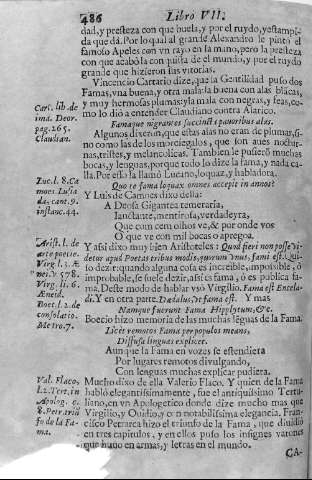 486
Libro VII.
dad, y presteza con que buela, y por el ruydo, y estampi-
da que dá. Por lo qual al grande Alexandro le pintó el
famoso Apeles con vn rayo en la mano, pero la presteza
con que acabó la quista de el mundo, y por el ruydo
grande que hizieron sus vitorias.
Vincencio Cartario dize, que la Gentilidad puso dos
Famas, vna buena, y otra mala: la buena con alas blācas,
y muy hermosas plumas: y la mala con negras, y feas, co-
mo lo dio a entender Claudiano contra Alarico.
Famaque nigrantes succincta pavoribus alas.
Algunos dixeron, que estas alas no eran de plumas, si-
no como las de los morciegalos, que son aues noctur-
nas, tristes, y melancolicas. Tambien le pusierō muchas
bocas, y lenguas, porque todo lo dize la fama, y nada ca-
lla. Por esso la llamó Lucano, loquaz, y habladora.
Quo te fama loquax omnes accepit in annos?
Y Luis de Camoes dixo della:
A Deosa Gigantea temeraria,
Iactante, mentirosa, verdadeyra,
Que cum cem olhos ve, & por onde vos
O que ve con mil bocas o apregoa.
Y assi dixo muy bien Aristoteles: Quod fieri non posse vi-
detur apud Poetas tribus modis, quorum vnus, fama est. Qui-
so dezir: quando alguna cosa es increible, impossible, ò
improbable, se suele dezir, assi es fama, ò es publica fa-
ma. Deste modo de hablar vsó Virgilio. Fama est Encela-
di. Y en otra parte. Dædalus, vt fama est. Y mas
Namque fuerunt Fama Hippolytum, &c.
Boecio hizo memoria de las muchas lēguas de la Fama.
Licet remotos Fama per populos means,
Diffusa linguas explicet.
Aunque la Fama en vozes se estendiera
Por lugares remotos divulgando,
Con lenguas muchas explicar pudiera.
Mucho dixo de ella Valerio Flaco. Y quien de la Fama
habló elegantissimamente, fue el antiquissimo Tertu-
liano, en vn Apologetico donde dize mucho mas que
Virgilio, y Ouidio, y con notabilissima elegancia. Fran-
cisco Petrarca hizo el triunfo de la Fama, que diuidió
en tres capitulos, y en ellos puso los insignes varones
que huuo en armas, y letras en el mundo.
CA-
Cart. lib. de
ima. Deor.
pag. 265.
Claudian.
Luc. l. 8. Ca
moes Lusia
da, cant. 9.
instanc. 44.
Arist. l. de
arte poetic.
Virg. l. 3. Æ
nei. v. 578.
Virg. li. 6.
Æneid.
Boet. l. 2. de
consolatio.
Metro. 7.
Val. Flaco,
l. 2. Tert. in
Apolog. c.
8. Petr. triū
fo de la Fa-
ma.